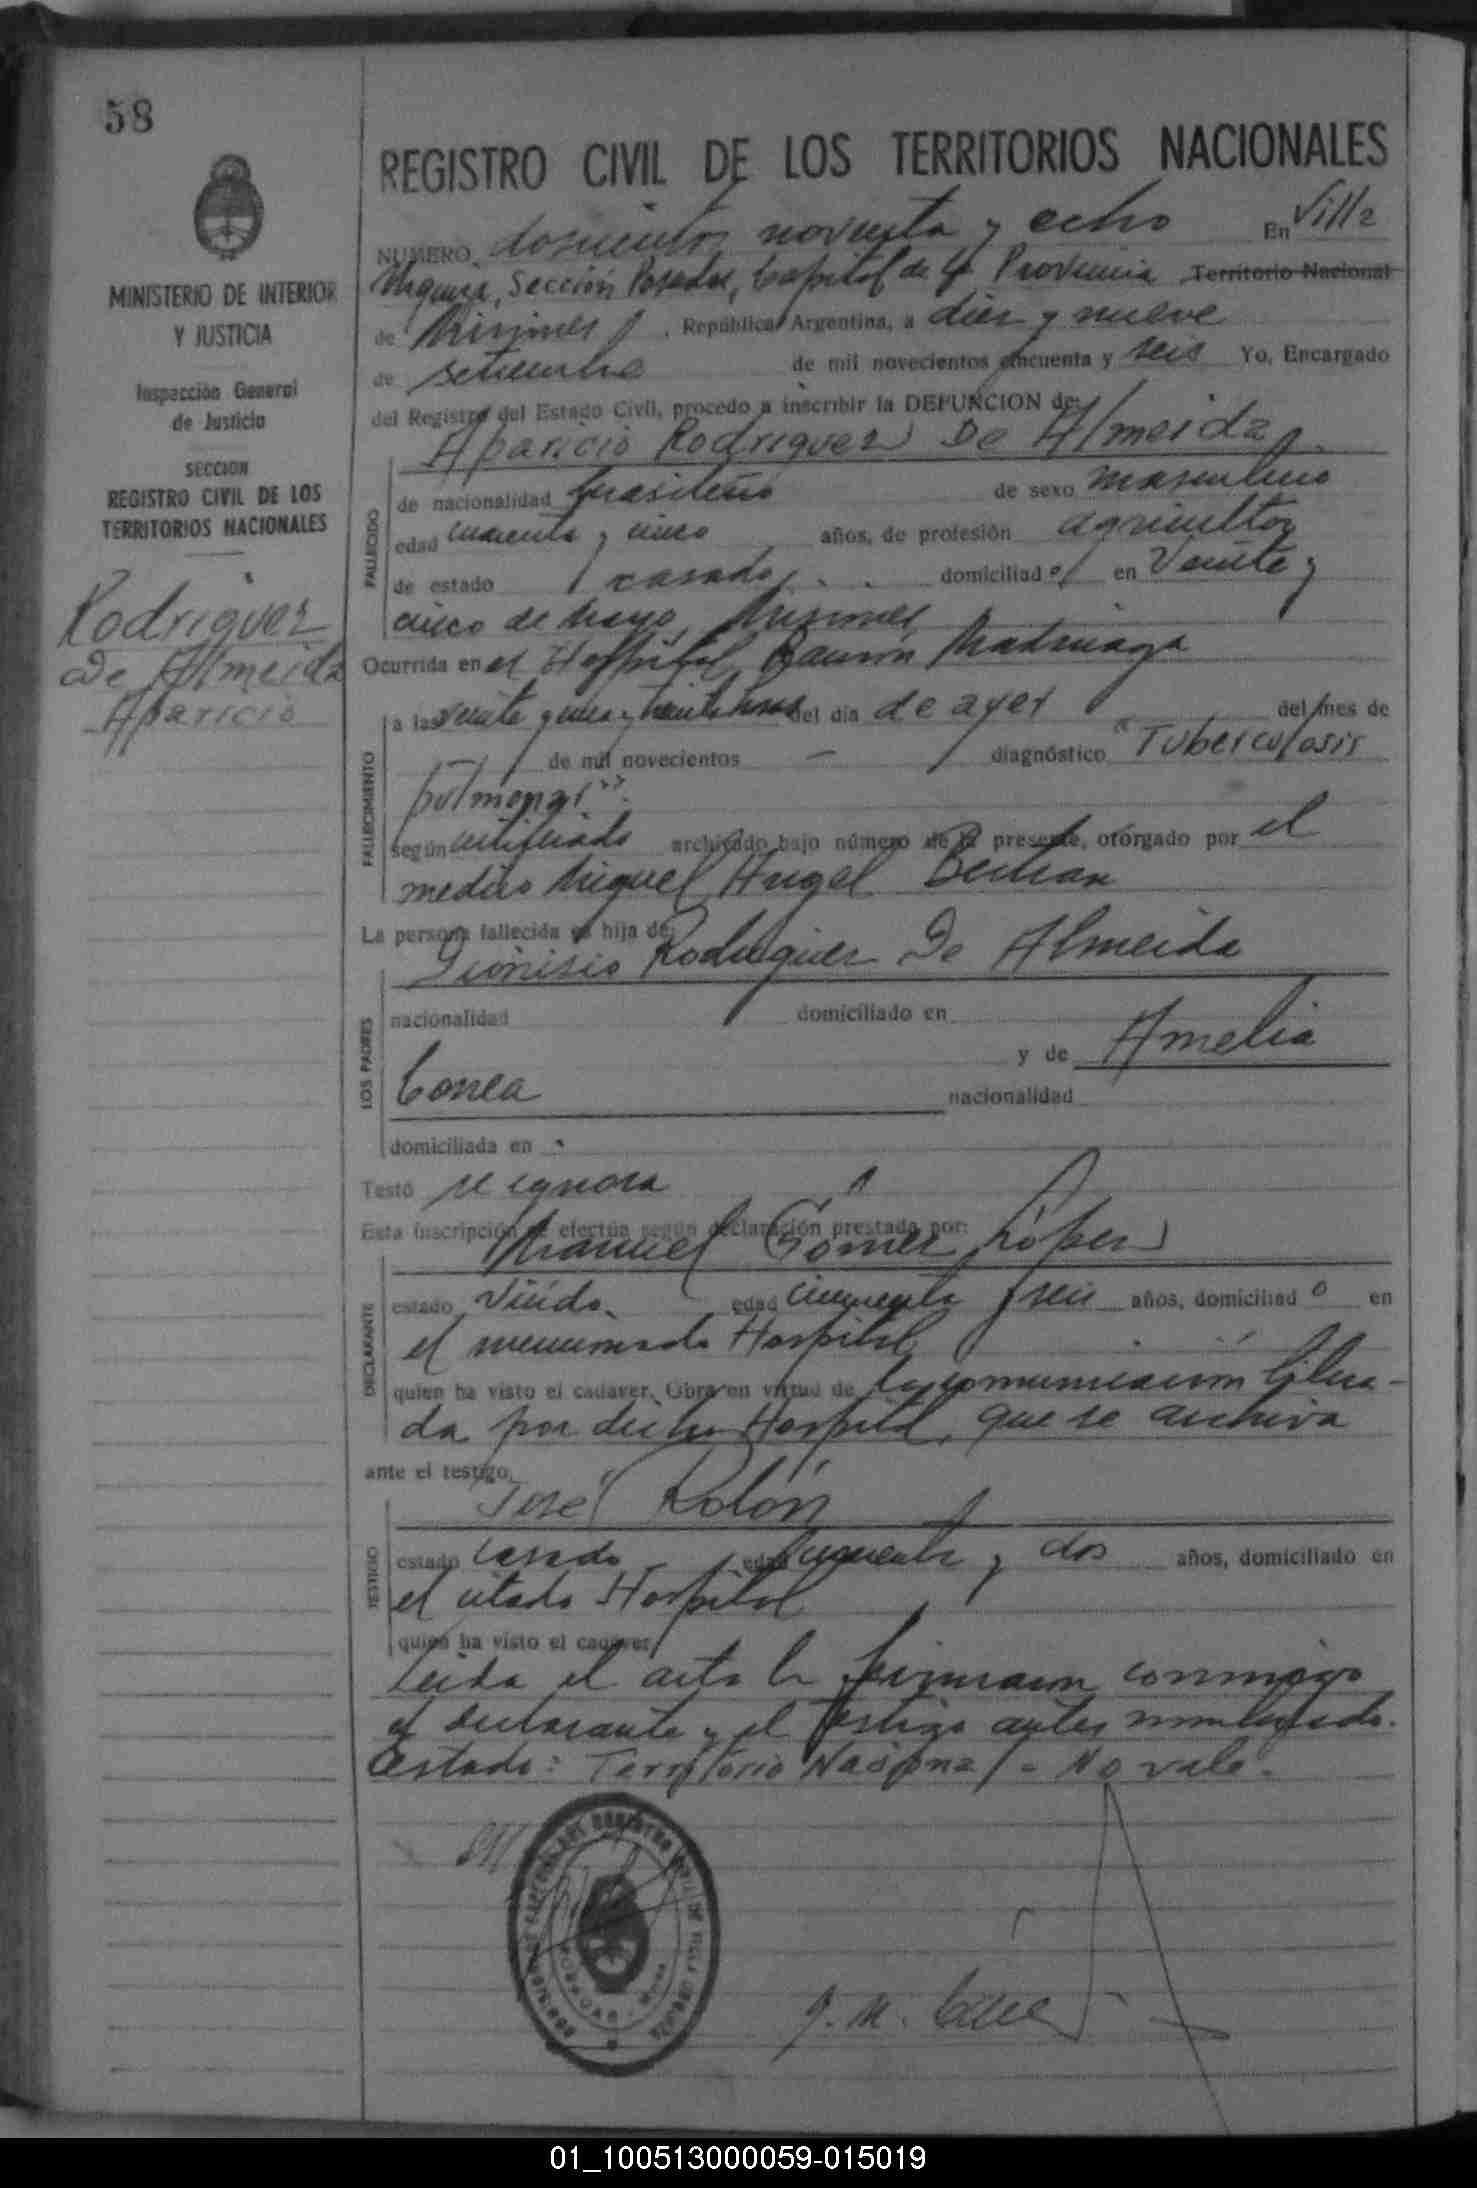 58
REGISTRO CIVIL DE LOS TERRITORIOS NACIONALES
MINISTERIO DE INTERIOR
Y JUSTICIA
Inspección General
de Justicia
SECCION
REGISTRO CIVIL DE LOS
TERRITORIOS NACIONALES
Rodriguez
De Almeida
Aparicio
NUMERO doscientos noventa y ocho En Villa
Urquiza, Sección Posadas, Capital de la Provincia Territorio Nacional
de Misiones, República Argentina, a diez y nueve
de setiembre de mil novecientos cincuenta y seis Yo, Encargado
del Registro del Estado Civil, procedo a inscribir la DEFUNCION de:
Aparicio Rodriguez De Almeida
FALLECIDO
de nacionalidad brasileño de sexo masculino
edad cuarenta y cinco años, de profesión agricultor
de estado casado domiciliad o en Veinte y
cinco de Mayo, Misiones
Ocurrida en el Hospital Ramón Madariaga
FALLECIMIENTO
a las veinte y una y treinta horas del día de ayer del mes de
de mil novecientos — diagnóstico "Tuberculosis
pulmonar".
según certificado archivado bajo número de la presente, otorgado por el
médico Miguel Angel Bertran
La persona fallecida es hija de:
Dionisio Rodriguez De Almeida
LOS PADRES
nacionalidad domiciliado en
y de Amelia
Correa nacionalidad
domiciliada en
Testó se ignora
Esta inscripción se efectúa según declaración prestada por:
Manuel Gómez López
DECLARANTE
estado viudo edad cincuenta y seis años, domiciliad o en
el mencionado Hospital
quien ha visto el cadaver. Obra en virtud de la comunicación libra-
da por dicho Hospital, que se archiva
ante el testigo,
José Rolón
TESTIGO
estado casado edad cincuenta y dos años, domiciliado en
el citado Hospital
quien ha visto el cadaver
Leida el acta la firmaron conmigo
el declarante y el testigo antes nombrado.
Testado: Territorio Nacional - No vale.
J. M.
01_100513000059-015019